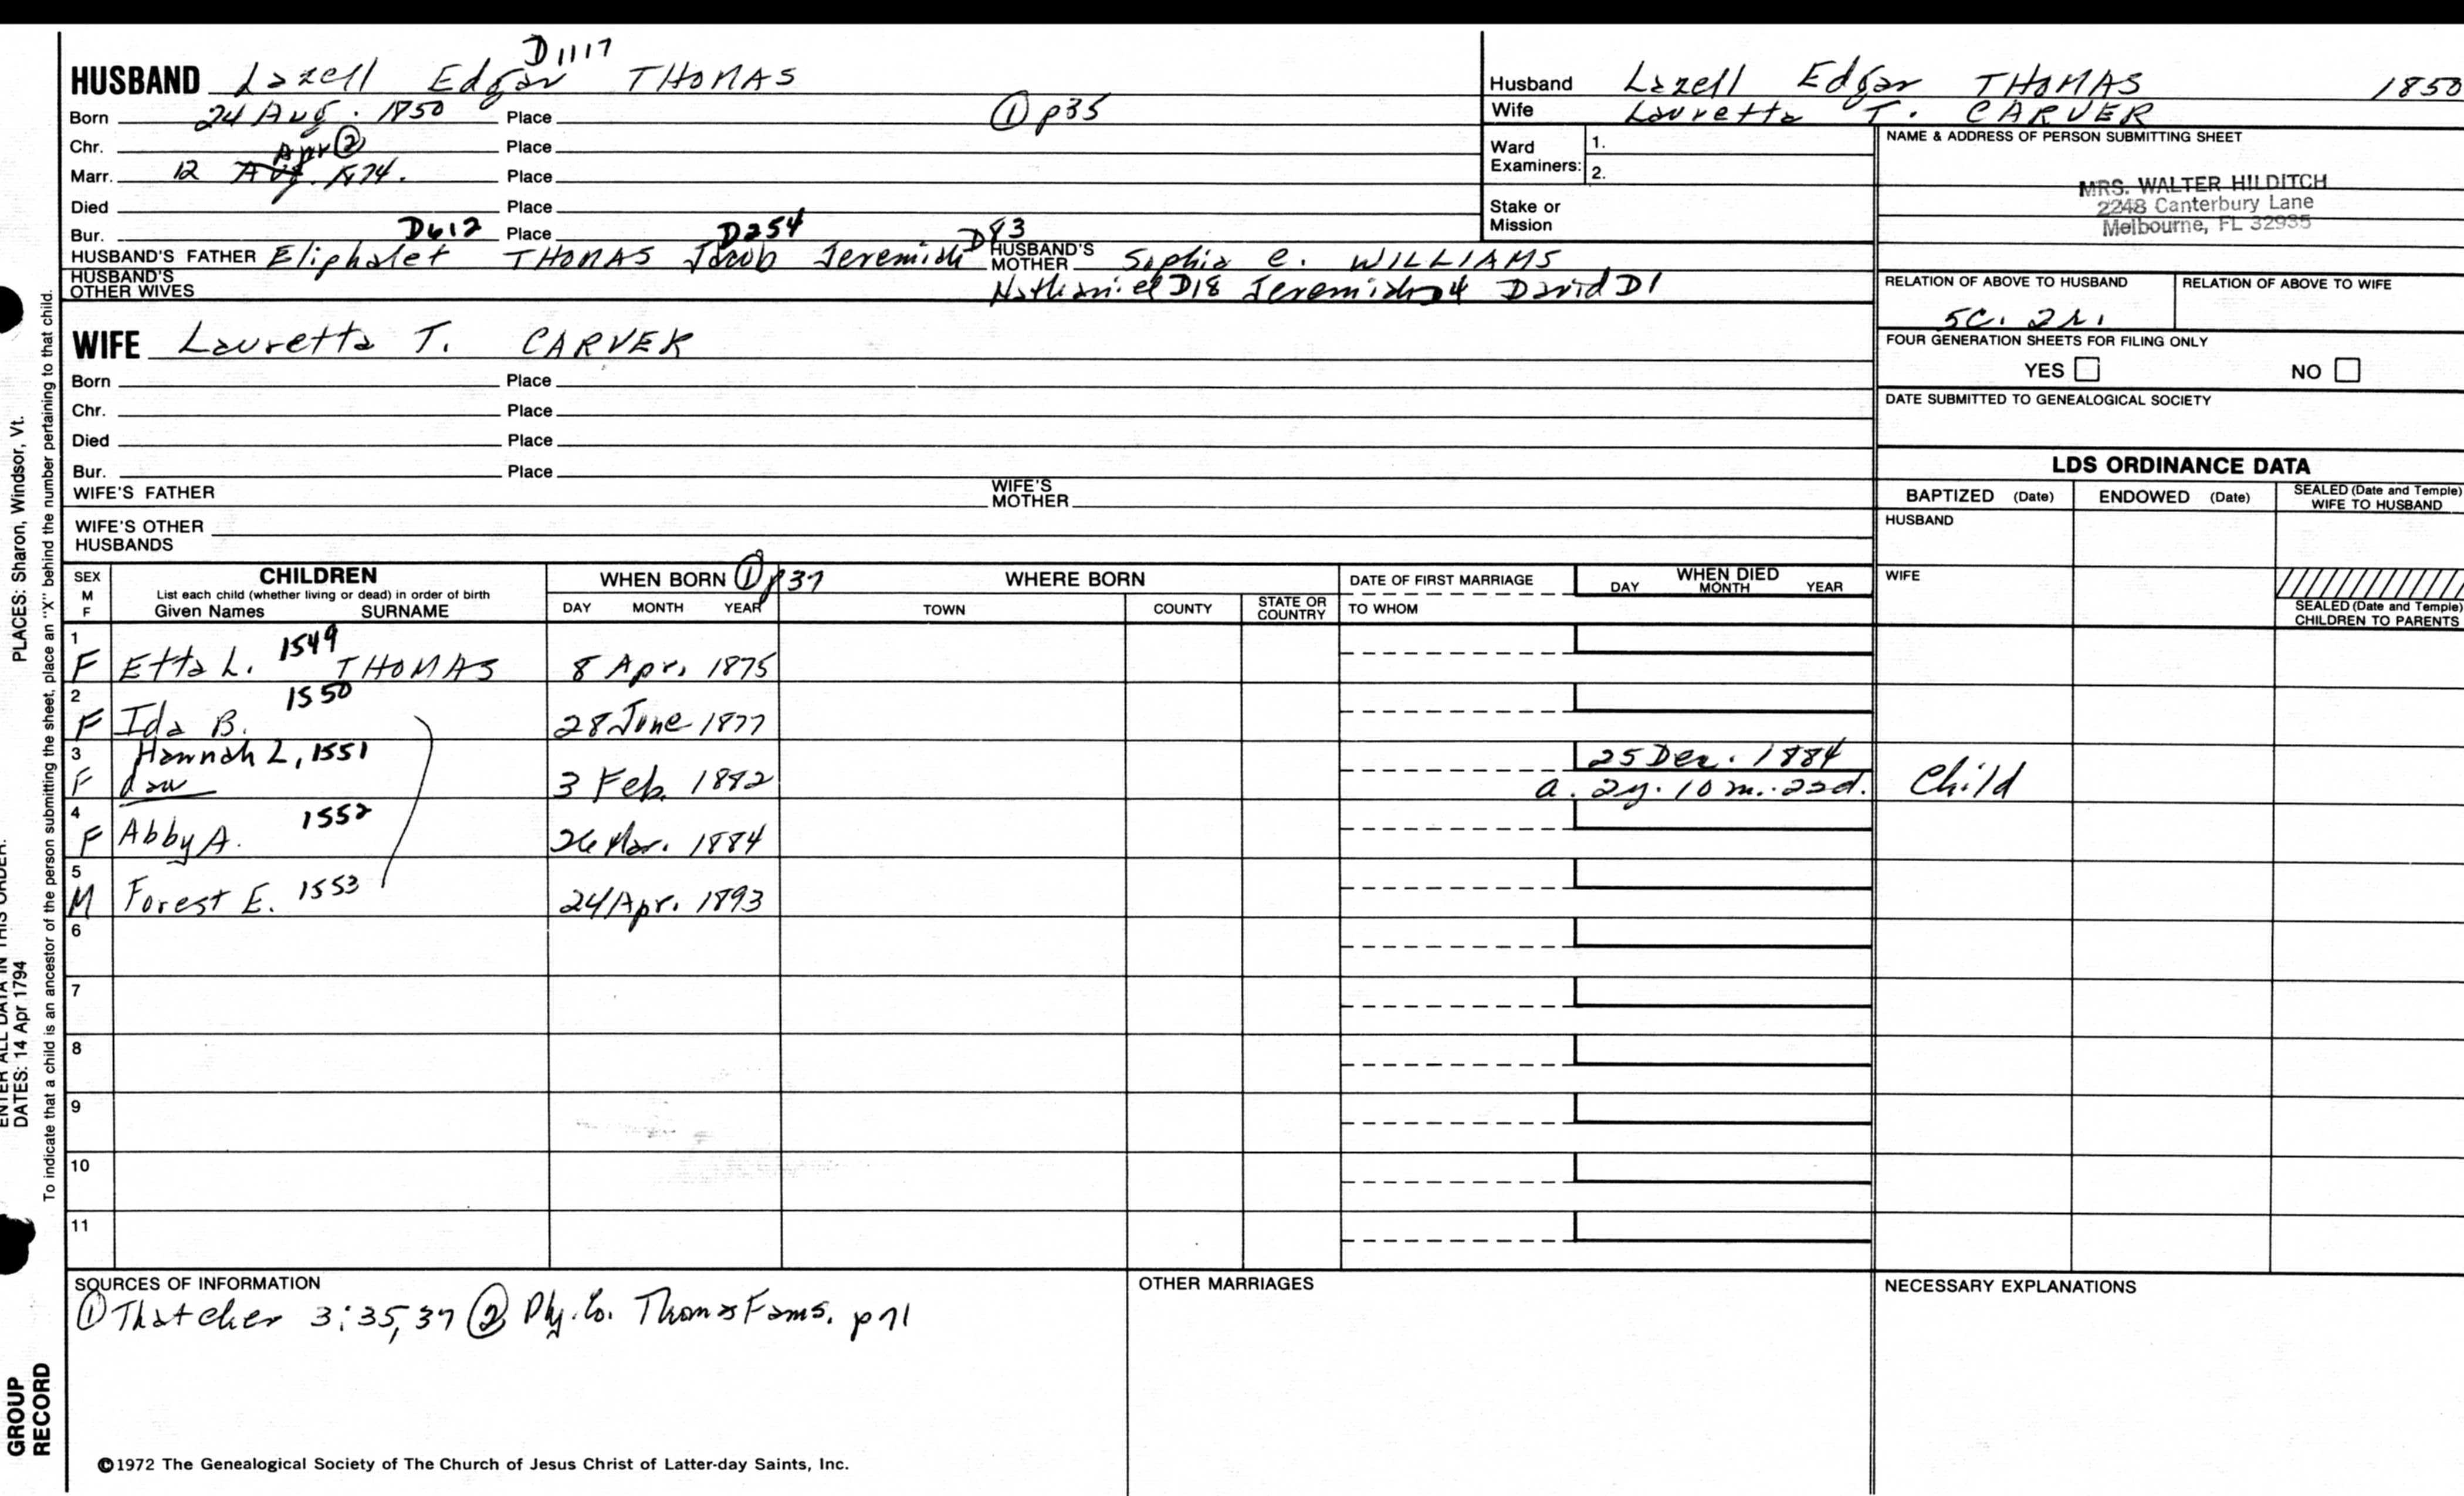 D1117
HUSBAND Lazell Edgar THOMAS
Born 24 Aug. 1850 Place ① p35
Chr. Place
Apr ②
Marr. 12 Aug. 1874. Place
Died Place
Bur. Place
D612 D254 D83
HUSBAND'S FATHER Eliphalet THOMAS Jacob Jeremiah HUSBAND'S MOTHER Sophia C. WILLIAMS
HUSBAND'S OTHER WIVES Nathaniel D18 Jeremiah D4 David D1
WIFE Lauretta T. CARVER
Born Place
Chr. Place
Died Place
Bur. Place
WIFE'S FATHER WIFE'S MOTHER
WIFE'S OTHER HUSBANDS
Husband Lazell Edgar THOMAS 1850
Wife Lauretta T. CARVER
Ward Examiners: 1.
2.
Stake or Mission
NAME & ADDRESS OF PERSON SUBMITTING SHEET
MRS. WALTER HILDITCH
2248 Canterbury Lane
Melbourne, FL 32935
RELATION OF ABOVE TO HUSBAND RELATION OF ABOVE TO WIFE
5C. 2r.
FOUR GENERATION SHEETS FOR FILING ONLY
YES NO
DATE SUBMITTED TO GENEALOGICAL SOCIETY
LDS ORDINANCE DATA
BAPTIZED (Date) ENDOWED (Date) SEALED (Date and Temple) WIFE TO HUSBAND
HUSBAND
WIFE
SEALED (Date and Temple) CHILDREN TO PARENTS
SEX M F CHILDREN WHEN BORN ① p37 WHERE BORN DATE OF FIRST MARRIAGE WHEN DIED
List each child (whether living or dead) in order of birth
Given Names SURNAME DAY MONTH YEAR TOWN COUNTY STATE OR COUNTRY TO WHOM DAY MONTH YEAR
1 F Etta L. 1549 THOMAS 8 Apr. 1875
2 F Ida B. 1550 28 June 1877
3 Hannah L, 1551 25 Dec. 1884
F dau 3 Feb. 1882 a. 2y. 10 m. 22d. Child
4 F Abby A. 1552 26 Mar. 1884
5 M Forest E. 1553 24 Apr. 1893
6
7
8
9
10
11
SOURCES OF INFORMATION OTHER MARRIAGES NECESSARY EXPLANATIONS
① Thatcher 3:35,37 ② Ply. Co. Thomas Fams. p71
©1972 The Genealogical Society of The Church of Jesus Christ of Latter-day Saints, Inc.
PLACES: Sharon, Windsor, Vt.
ENTER ALL DATA IN THIS ORDER:
DATES: 14 Apr 1794
To indicate that a child is an ancestor of the person submitting the sheet, place an "X" behind the number pertaining to that child.
GROUP RECORD